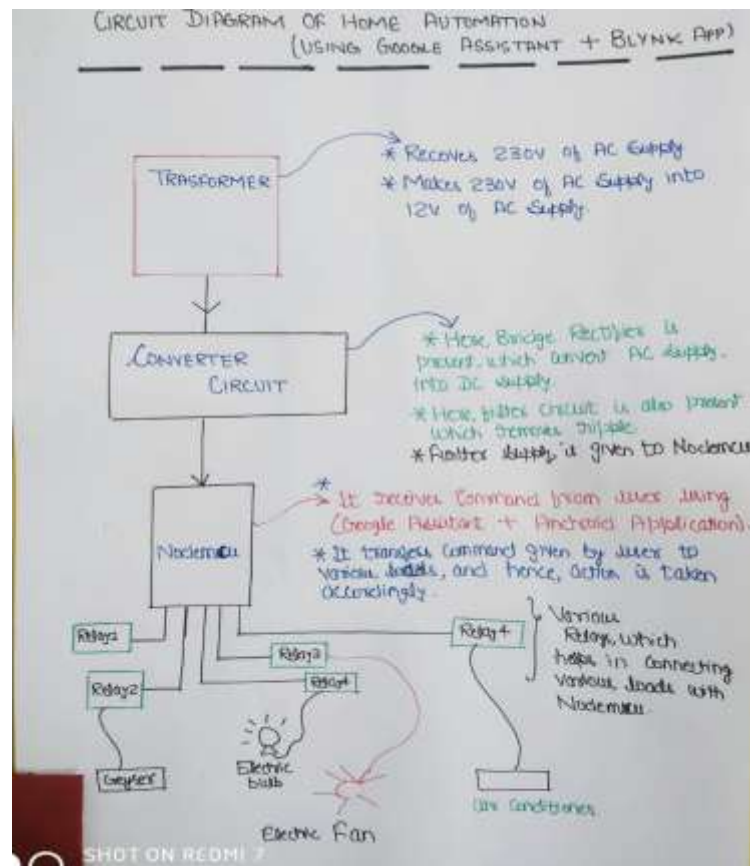 CIRCUIT DIAGRAM OF HOME AUTOMATION
(USING GOOGLE ASSISTANT + BLYNK APP)
TRASFORMER
* Recoves 230V of AC Supply
* Makes 230V of AC Supply into
12V of AC Supply.
CONVERTER
CIRCUIT
* Here, Bridge Rectifier is
present, which convert AC supply.
into DC supply.
* Here, filter circuit is also present
which removes ripple.
* Further supply is given to Nodemcu
*
It recover Command from user using
(Google Assistant + Android Application).
Nodemcu
* It transfers Command given by user to
various loads, and hence, action is taken
accordingly.
Relay1
Relay3
Relay4
Various
Relays, which
helps in connecting
various loads with
Nodemcu
Relay2
Relay4
Geyser
Electric
bulb
Electric Fan
Air Conditioner
SHOT ON REDMI 7